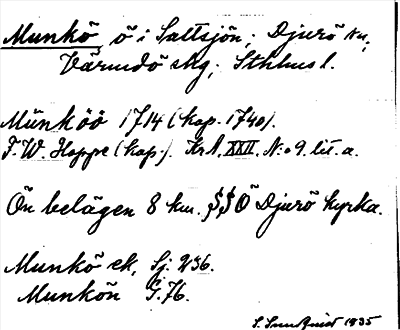 Munkö, ö i Saltsjön; Djurö sn;
Värmdö skg; Sthlms l.
Münköö 1714 (kop. 1740).
F. W. Hoppe (kop.). KrA, XXII, No 9. lit. a.
Ön belägen 8 km. SSÖ Djurö kyrka.
Munkö ek, Sj. 236.
Munkön G. 76.
1935